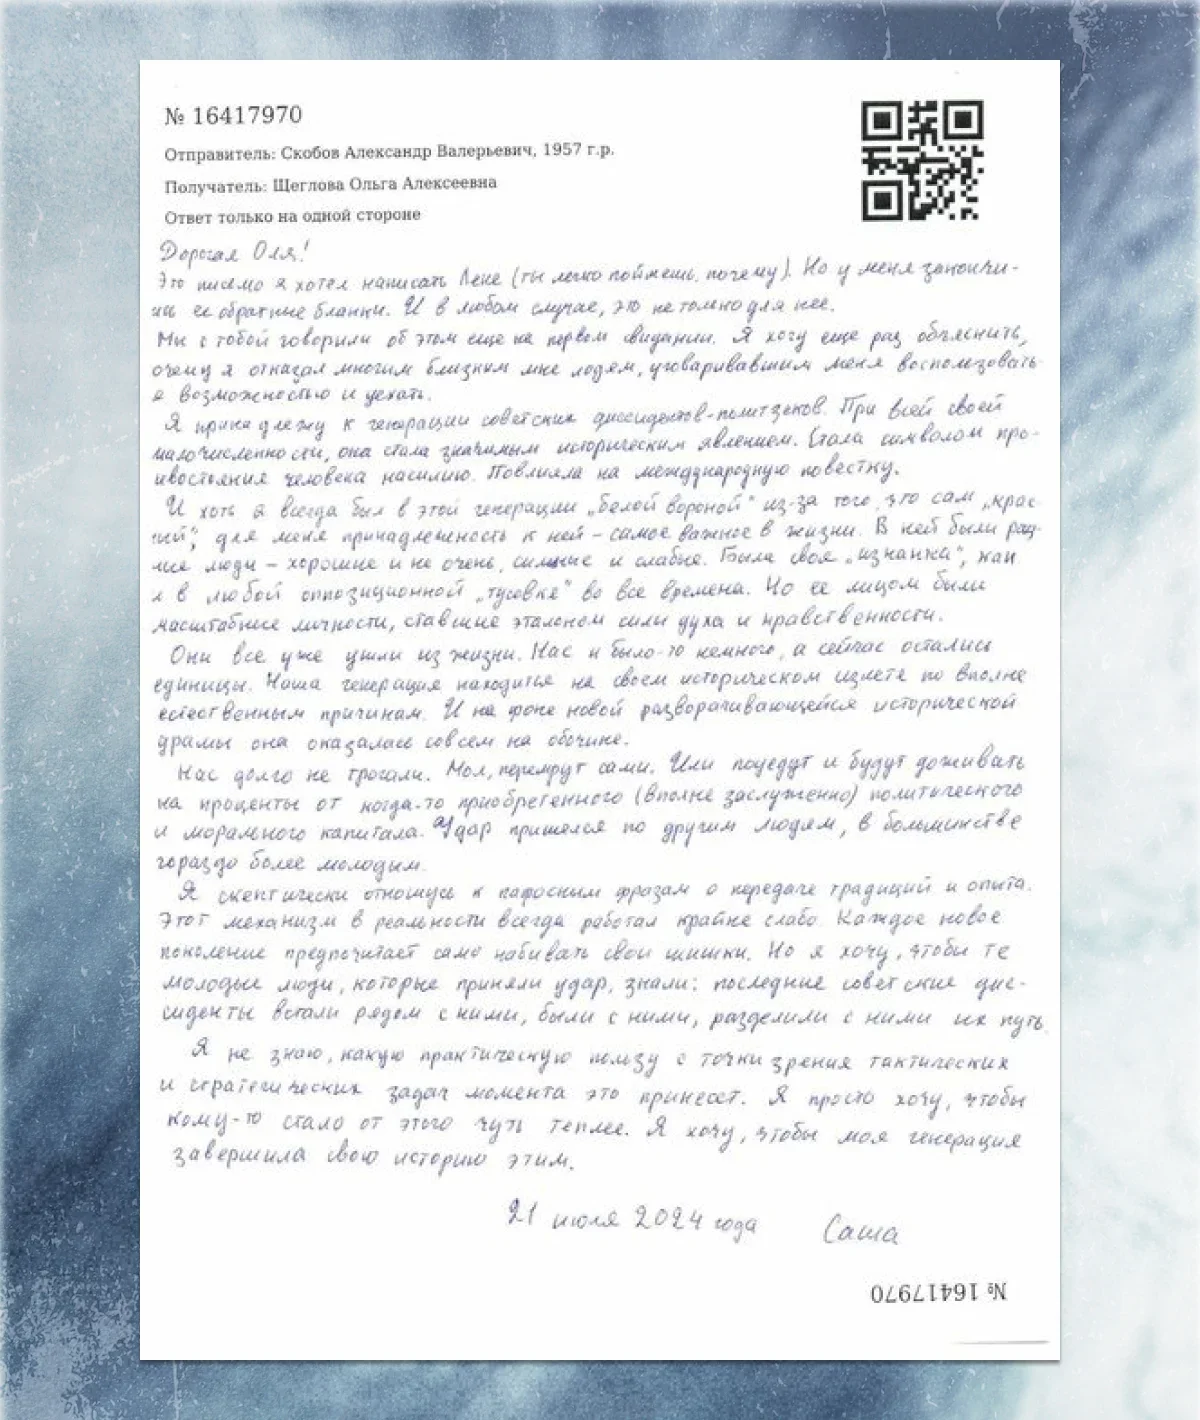 № 16417970
Отправитель: Скобов Александр Валерьевич, 1957 г.р.
Получатель: Щеглова Ольга Алексеевна
Ответ только на одной стороне
Дорогая Оля!
Это письмо я хотел написать Лене (ты легко поймешь, почему). Но у меня закончи-
ись ее обратные бланки. И в любом случае, это не только для нее.
Мы с тобой говорили об этом еще на первом свидании. Я хочу еще раз объяснить,
очему я отказал многим близким мне людям, уговаривавшим меня воспользовать-
я возможностью и уехать.
Я принадлежу к генерации советских диссидентов-политзеков. При всей своей
малочисленности, она стала значимым историческим явлением. Стала символом про-
ивостояния человека насилию. Повлияла на международную повестку.
И хоть я всегда был в этой генерации „белой вороной" из-за того, что сам „крас-
ный", для меня принадлежность к ней – самое важное в жизни. В ней были раз-
ные люди – хорошие и не очень, сильные и слабые. Была своя „изнанка", как
и в любой оппозиционной „тусовке" во все времена. Но ее лицом были
масштабные личности, ставшие эталоном силы духа и нравственности.
Они все уже ушли из жизни. Нас и было-то немного, а сейчас остались
единицы. Наша генерация находится на своем историческом излете по вполне
естественным причинам. И на фоне новой разворачивающейся исторической
драмы она оказалась совсем на обочине.
Нас долго не трогали. Мол, перемрут сами. Или поуедут и будут доживать
на проценты от когда-то приобретенного (вполне заслуженно) политического
и морального капитала. Удар пришелся по другим людям, в большинстве
гораздо более молодым.
Я скептически отношусь к пафосным фразам о передаче традиций и опыта.
Этот механизм в реальности всегда работал крайне слабо. Каждое новое
поколение предпочитает само набивать свои шишки. Но я хочу, чтобы те
молодые люди, которые приняли удар, знали: последние советские дис-
сиденты встали рядом с ними, были с ними, разделили с ними их путь.
Я не знаю, какую практическую пользу с точки зрения тактических
и стратегических задач момента это принесет. Я просто хочу, чтобы
кому-то стало от этого чуть теплее. Я хочу, чтобы моя генерация
завершила свою историю этим.
21 июля 2024 года Саша
№ 16417970